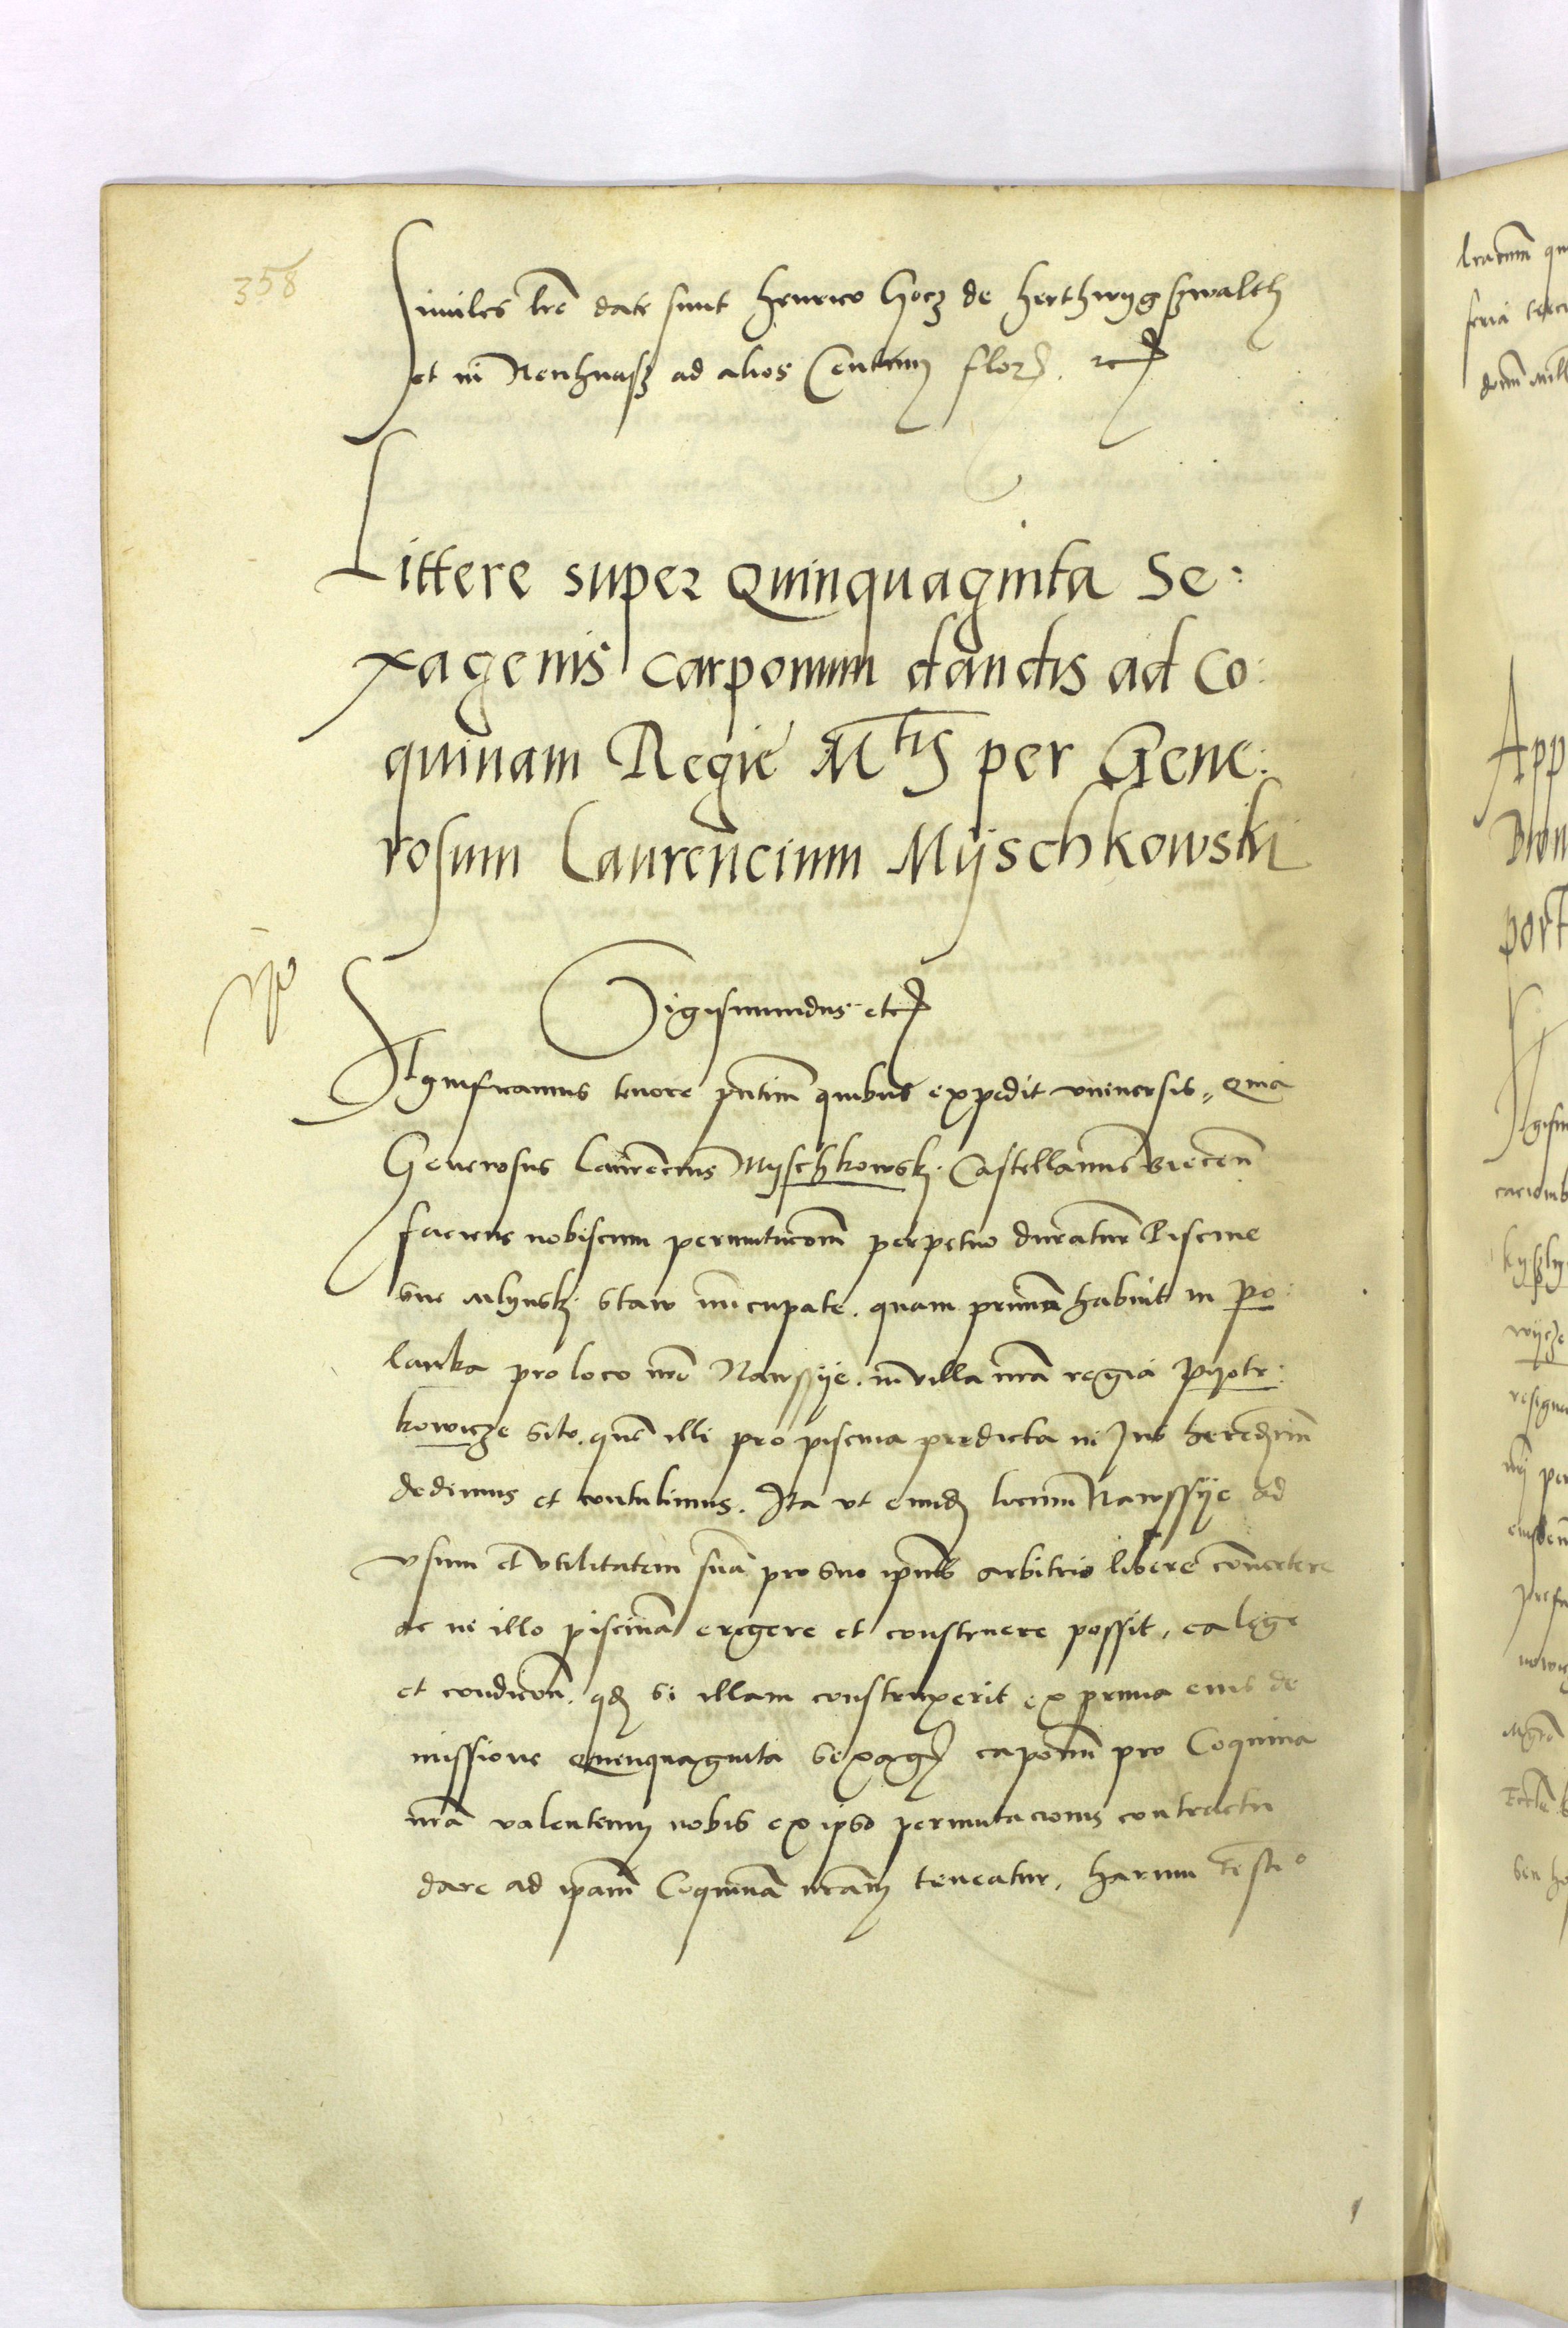 358
Similes lre date sunt Henrico Gocz de Herthwygszwalth
et in Neuhuasz ad alios Centum flor. etc
Littere super Quinquaginta Se:
xagenis carponum dandis ad Co:
quinam Regie Mtis per Gene:
rosum Laurencium Myschkowski
Sigismundus etc
Significamus tenore pntim quibus expedit vniuersis, Quia
Generosus Laurencius Myschkowski Castellanus Biecen
faciens nobiscum permutacom perpetuo duratur Piscine
sue Mlynski staw nuncupate. quam primum habuit in Po:
lanka pro loco nro Nawssye. in villa nra regia Pyotr:
kowicze sito. quem illi pro piscina predicta in Jus hereditarium
dedimus et contulimus. Ita vt eundem locum Nawssye ad
vsum et vtilitatem suam pro suo ipius arbitrio libere conuertere
ac in illo piscinam erigere et construere possit, ea lege
et condicon. qd si illam construxerit ex prima eius de
missione quinquaginta sexag carponum pro Coquina
nra valentem nobis ex ipso permutacionis contractu
dare ad ipam Coquinam nram teneatur, harum testio